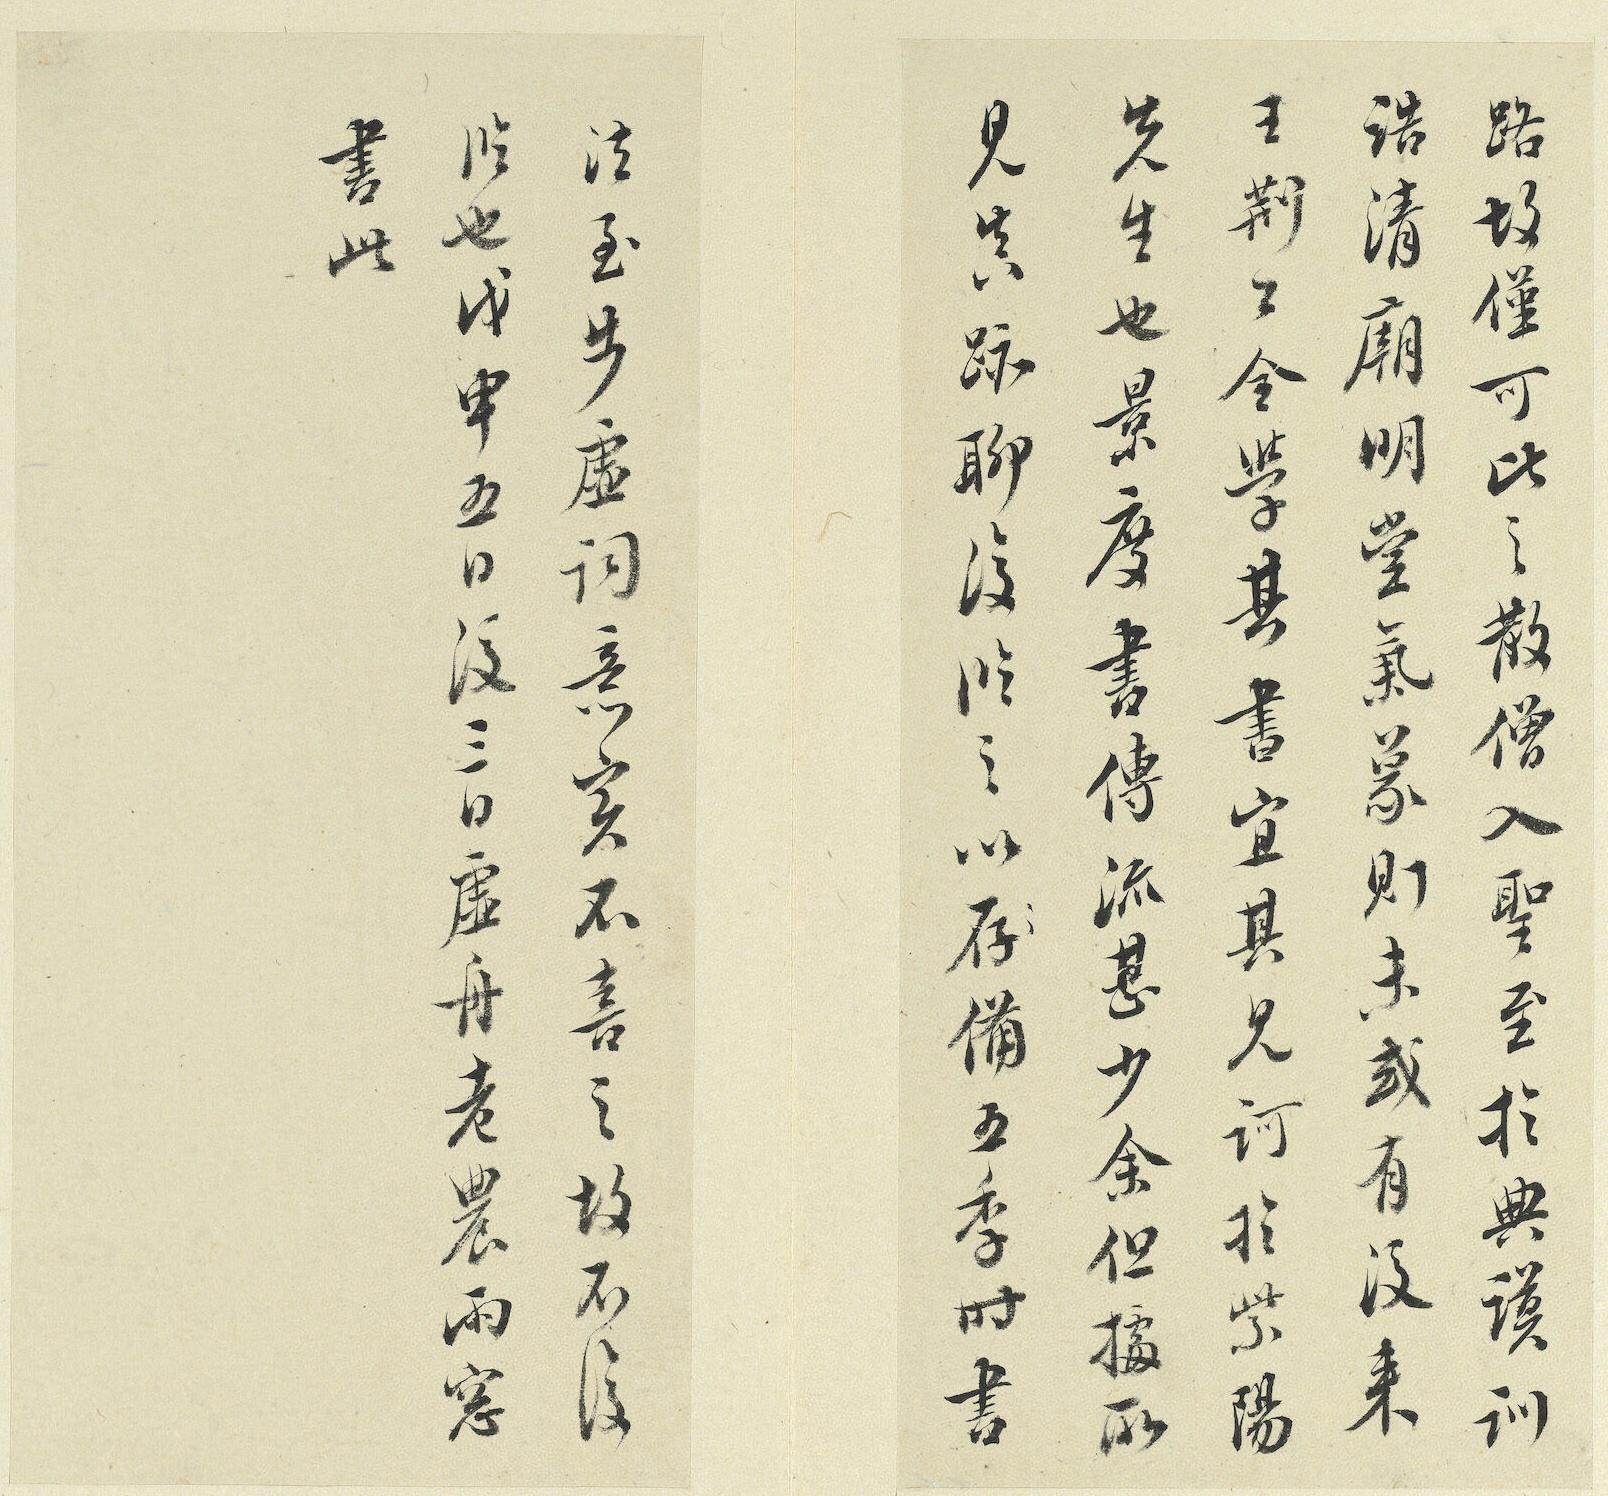 路故僅可比之散僧入聖至於典謨訓
誥清廟明堂氣象則未或有後來
王荊公全學其書宜其見訶於紫陽
先生也景度書傳流甚少余但據所
見真跡聊復臨之以存備五季時書
法至步虛詞意實不喜之故不復
臨也戊申五日後三日虛舟老農雨窓
書此